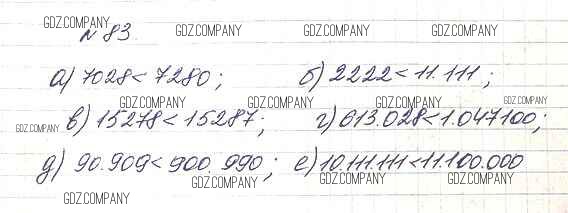 GDZ.COMPANY GDZ.COMPANY GDZ.COMPANY GDZ.COMPANY
№ 83.
GDZ.COMPANY GDZ.COMPANY
а) 7028 < 7280; б) 2222 < 11.111;
GDZ.COMPANY GDZ.COMPANY GDZ.COMPANY
GDZ.COMPANY в) 15278 < 15287; г) 613.028 < 1.047100;
д) 90.909 < 900.990; е) 10.111.111 < 11.100.000
GDZ.COMPANY GDZ.COMPANY GDZ.COMPANY
GDZ.COMPANY